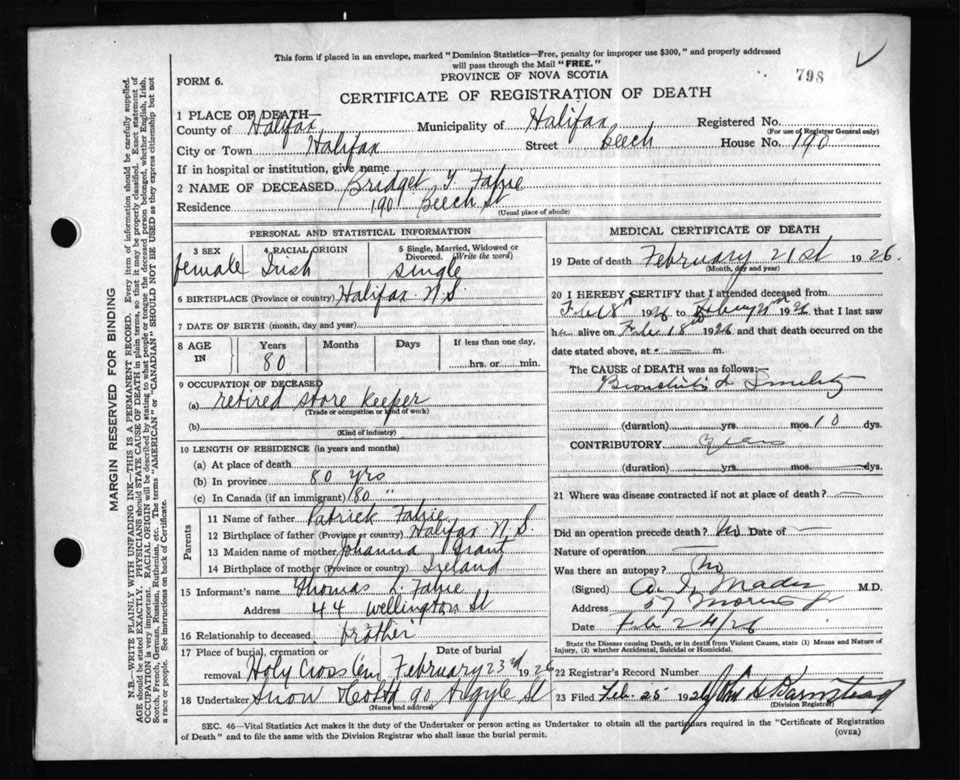 This form if placed in an envelope, marked "Dominion Statistics—Free, penalty for improper use $300," and properly addressed
will pass through the Mail "FREE."
FORM 6.
PROVINCE OF NOVA SCOTIA
798
CERTIFICATE OF REGISTRATION OF DEATH
1 PLACE OF DEATH—
County of Halifax, Municipality of Halifax Registered No.
(For use of Registrar General only)
City or Town Halifax Street Beech House No. 190
If in hospital or institution, give name
2 NAME OF DECEASED Bridget Y Fahie
Residence 190 Beech St
(Usual place of abode)
PERSONAL AND STATISTICAL INFORMATION
3 SEX 4 RACIAL ORIGIN 5 Single, Married, Widowed or
Divorced. (Write the word)
female Irish single
6 BIRTHPLACE (Province or country) Halifax N.S.
7 DATE OF BIRTH (month, day and year)
8 AGE IN Years Months Days If less than one day,
80 hrs. or min.
9 OCCUPATION OF DECEASED
(a) retired store keeper
(Trade or occupation or kind of work)
(b)
(Kind of industry)
10 LENGTH OF RESIDENCE (in years and months)
(a) At place of death
(b) In province 80 yrs
(c) In Canada (if an immigrant) 80 "
Parents
11 Name of father Patrick Fahie
12 Birthplace of father (Province or country) Halifax N.S.
13 Maiden name of mother Johanna Grant
14 Birthplace of mother (Province or country) Ireland
15 Informant's name Thomas L. Fahie
Address 44 Wellington St
16 Relationship to deceased brother
17 Place of burial, cremation or Date of burial
removal Holy Cross Cem February 23rd 1926
18 Undertaker Snow 90 Argyle St
(Name and address)
MEDICAL CERTIFICATE OF DEATH
19 Date of death February 21st 1926.
(Month, day and year)
20 I HEREBY CERTIFY that I attended deceased from
Feb 18th 1926 to 1926 that I last saw
her alive on Feb 18th 1926 and that death occurred on
date stated above, at — m.
The CAUSE of DEATH was as follows:
Bronchitis & Senility
(duration) yrs. mos. 10 dys.
CONTRIBUTORY Years
(duration) yrs. mos. dys.
21 Where was disease contracted if not at place of death? —
Did an operation precede death? No Date of —
Nature of operation —
Was there an autopsy? No
(Signed) A. I. Mader M.D.
Address 57 Morris St
Date Feb 24/26
State the Disease causing Death, or in Death from Violent Causes, state (1) Means and Nature of
Injury, (2) whether Accidental, Suicidal or Homicidal.
22 Registrar's Record Number
23 Filed Feb. 25 1926 John A Barnstead
(Division Registrar)
SEC. 46—Vital Statistics Act makes it the duty of the Undertaker or person acting as Undertaker to obtain all the particulars required in the "Certificate of Registration
of Death" and to file the same with the Division Registrar who shall issue the burial permit.
(OVER)
MARGIN RESERVED FOR BINDING
N.B.—WRITE PLAINLY WITH UNFADING INK—THIS IS A PERMANENT RECORD. Every item of information should be carefully supplied.
AGE should be stated EXACTLY. PHYSICIANS should STATE CAUSE OF DEATH in plain terms, so that it may be properly classified. Exact statement of
OCCUPATION is very important. RACIAL ORIGIN will be described by stating to what people or tongue the deceased person belonged, whether English, Irish,
Scotch, French, German, Russian, Ruthenian, etc. The terms "AMERICAN" or "CANADIAN" SHOULD NOT BE USED as they express citizenship but not
a race or people. See instructions on back of Certificate.